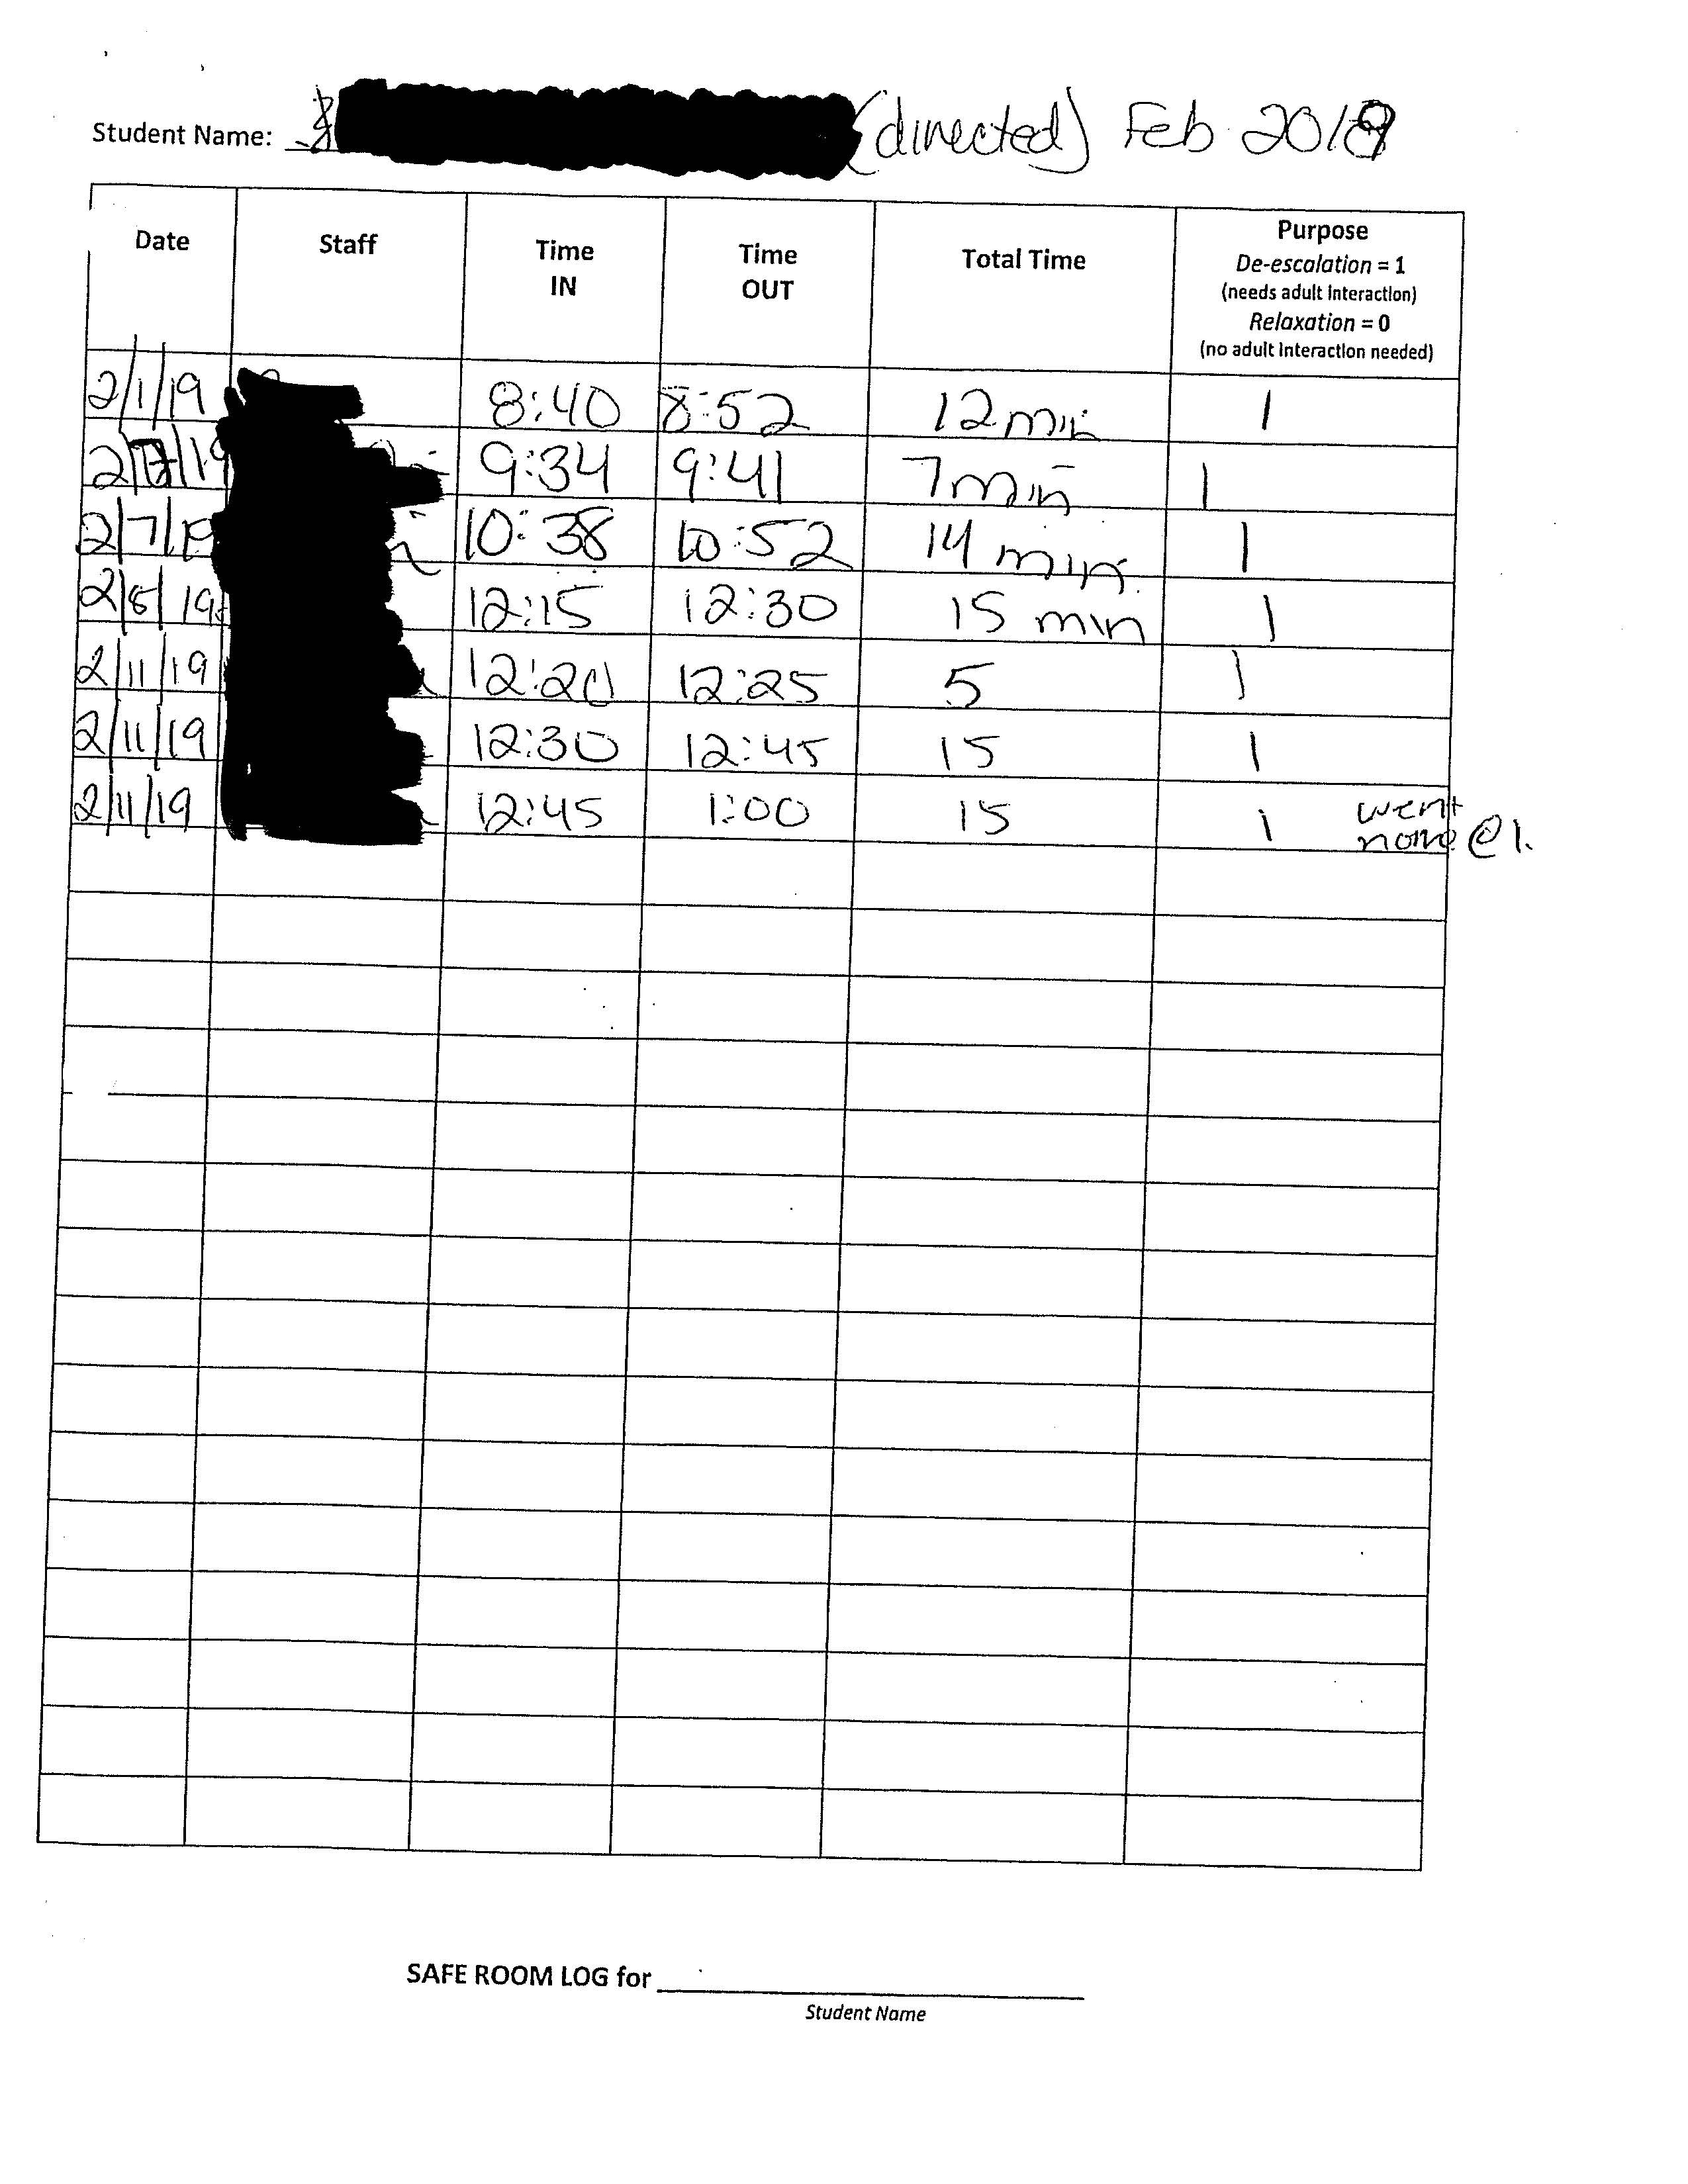 Student Name: (directed) Feb 2019
Date Staff Time IN Time OUT Total Time Purpose
De-escalation = 1
(needs adult interaction)
Relaxation = 0
(no adult interaction needed)
2/1/19 8:40 8:52 12 min 1
2/7/19 9:34 9:41 7 min 1
2/7/19 10:38 10:52 14 min 1
2/8/19 12:15 12:30 15 min 1
2/11/19 12:20 12:25 5 1
2/11/19 12:30 12:45 15 1
2/11/19 12:45 1:00 15 1 went
home @ 1.
SAFE ROOM LOG for
Student Name